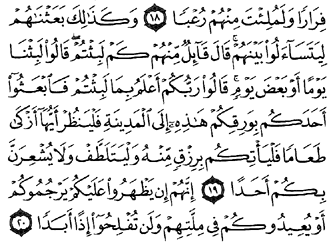 فِرَارًا وَلَمُلِئْتَ مِنْهُمْ رُعْبًا ١٨ وَكَذَٰلِكَ بَعَثْنَٰهُمْ
لِيَتَسَآءَلُوا۟ بَيْنَهُمْ ۚ قَالَ قَآئِلٌ مِّنْهُمْ كَمْ لَبِثْتُمْ ۖ قَالُوا۟ لَبِثْنَا
يَوْمًا أَوْ بَعْضَ يَوْمٍ ۚ قَالُوا۟ رَبُّكُمْ أَعْلَمُ بِمَا لَبِثْتُمْ فَٱبْعَثُوٓا۟
أَحَدَكُم بِوَرِقِكُمْ هَٰذِهِۦٓ إِلَى ٱلْمَدِينَةِ فَلْيَنظُرْ أَيُّهَآ أَزْكَىٰ
طَعَامًا فَلْيَأْتِكُم بِرِزْقٍ مِّنْهُ وَلْيَتَلَطَّفْ وَلَا يُشْعِرَنَّ
بِكُمْ أَحَدًا ١٩ إِنَّهُمْ إِن يَظْهَرُوا۟ عَلَيْكُمْ يَرْجُمُوكُمْ
أَوْ يُعِيدُوكُمْ فِى مِلَّتِهِمْ وَلَن تُفْلِحُوٓا۟ إِذًا أَبَدًا ٢٠